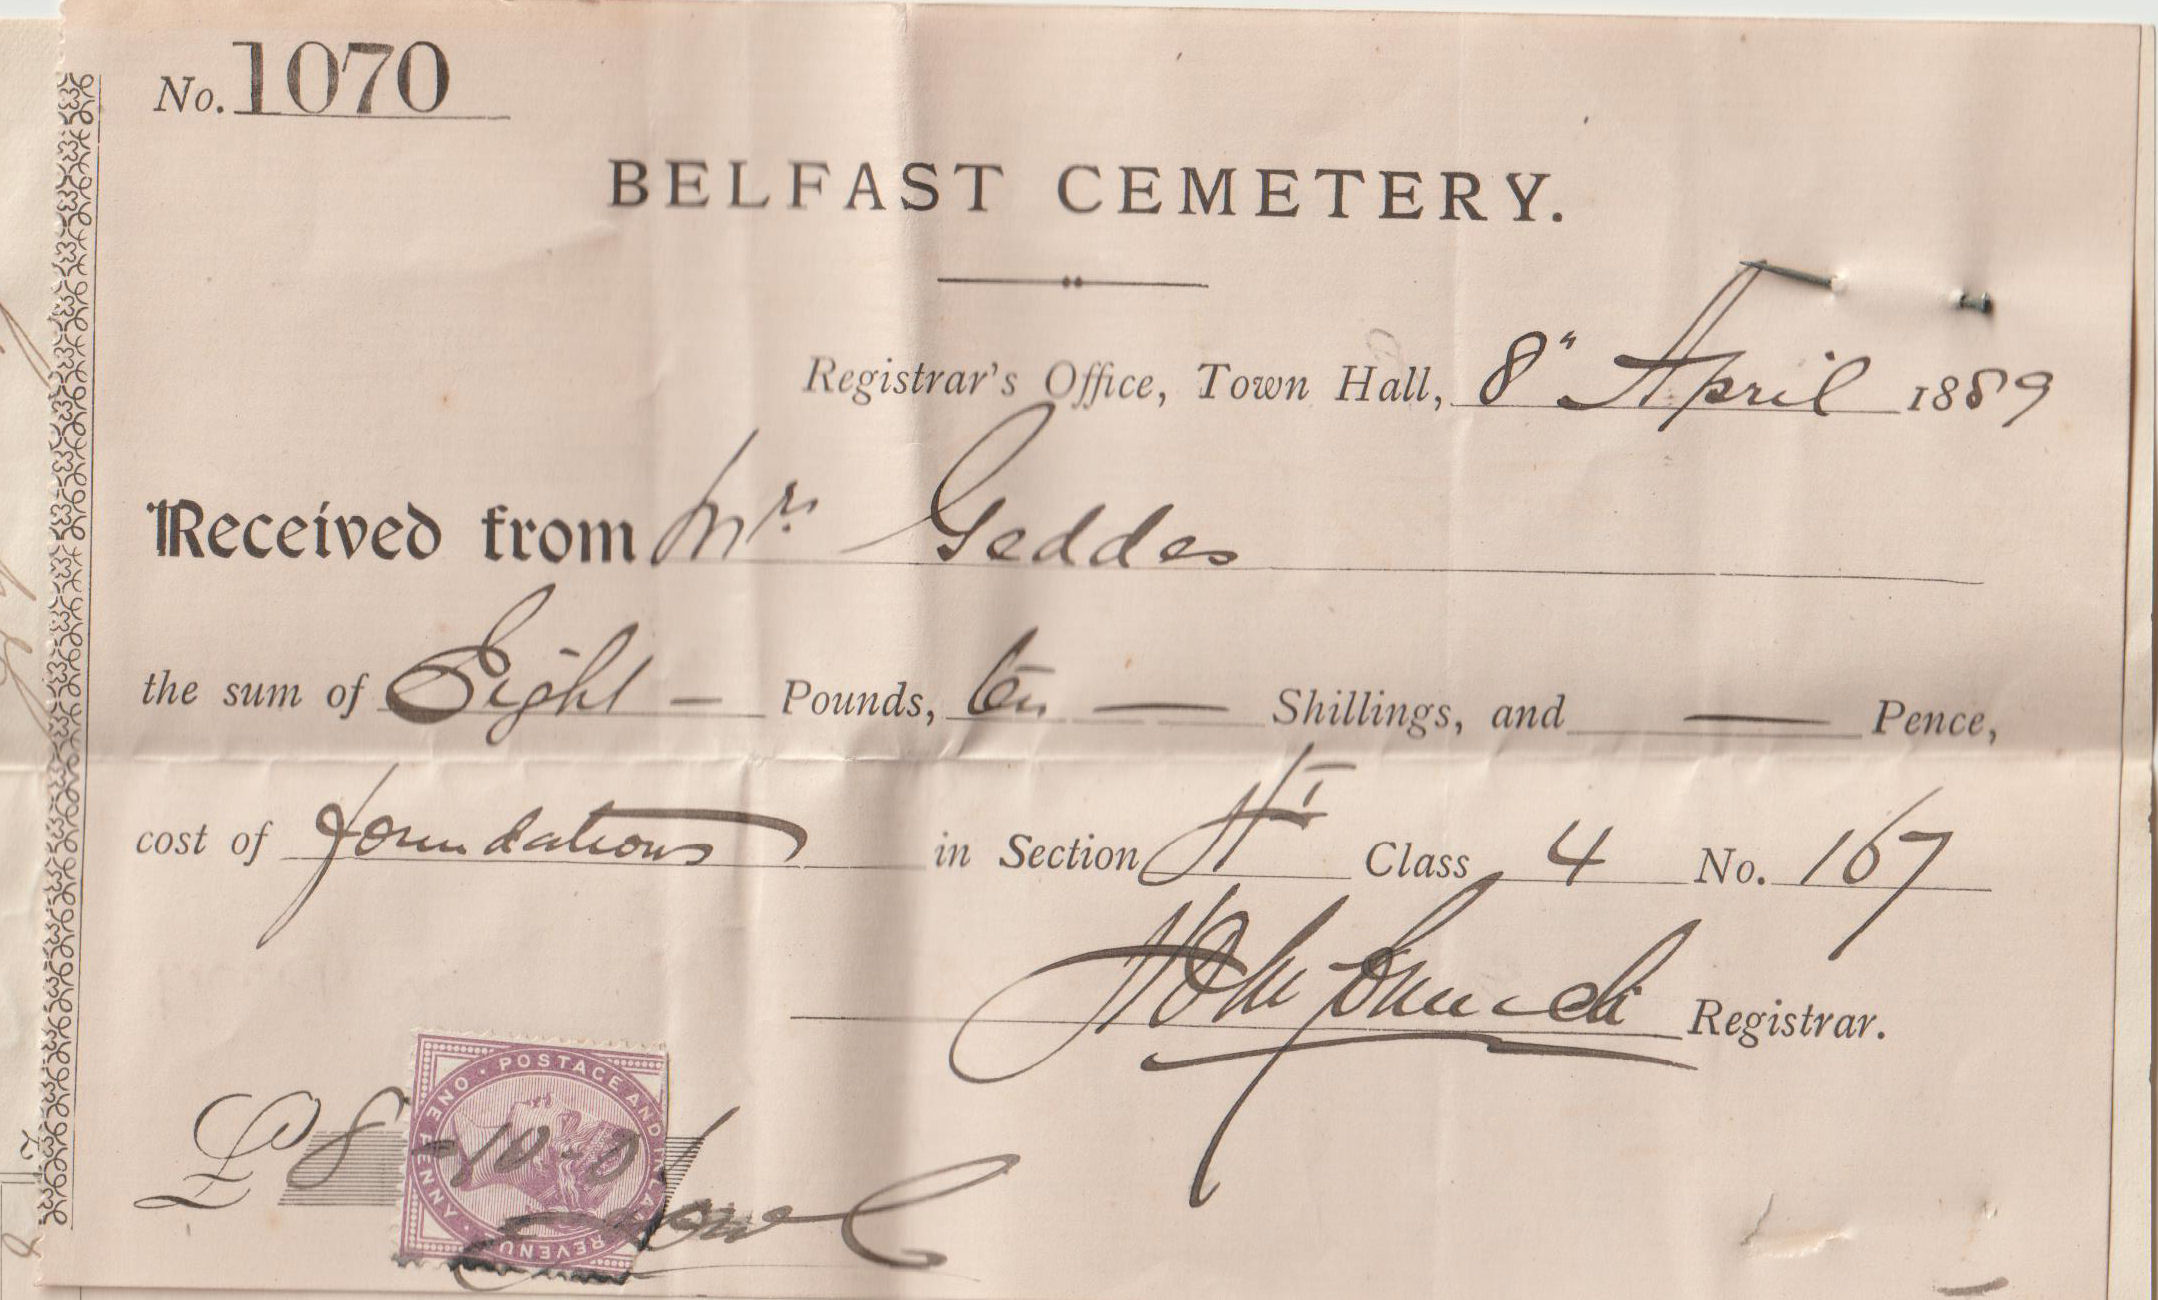 No. 1070
BELFAST CEMETERY.
Registrar's Office, Town Hall, 8" April 1889
Received from Mr. Geddes
the sum of Eight — Pounds, ten — Shillings, and — Pence,
cost of foundations in Section H I Class 4 No. 167
Registrar.
£8-10-0
POSTAGE AND INLAND REVENUE · ONE PENNY ·